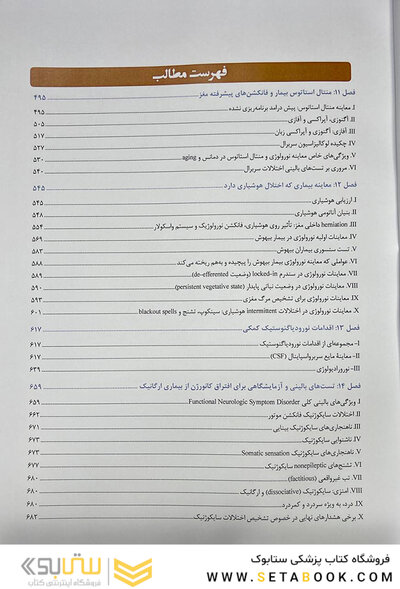 فهرست مطالب
فصل ۱۱: منتال استاتوس بیمار و فانکشن‌های پیشرفته مغز ۴۹۵
I. معاینه منتال استاتوس: پیش درآمد برنامه‌ریزی نشده ۴۹۵
II. آگنوزی، آپراکسی و آفازی ۵۰۵
III. آفازی: آگنوزی و آپراکسی زبان ۵۱۷
IV. چکیده لوکالیزاسیون سربرال ۵۲۷
V. ویژگی‌های خاص معاینه نورولوژی و منتال استاتوس در دمانس و aging ۵۳۰
VI. مروری بر تست‌های بالینی اختلالات سربرال ۵۴۰
فصل ۱۲: معاینه بیماری که اختلال هوشیاری دارد ۵۴۵
I. ارزیابی هوشیاری ۵۴۵
II. بنیان آناتومی هوشیاری ۵۴۸
III. herniation داخلی مغز: تأثیر روی هوشیاری، فانکشن نورولوژیک و سیستم واسکولار ۵۵۴
IV. معاینات اولیه نورولوژی در بیمار بیهوش ۵۶۹
V. تست سنسوری بیماران بیهوش ۵۸۳
VI. عواملی که معاینه نورولوژی بیمار بیهوش را پیچیده و به‌هم ریخته می‌کند ۵۸۸
VII. معاینات نورولوژی در سندرم locked-in (وضعیت de-efferented) ۵۸۹
VIII. معاینات نورولوژی در وضعیت نباتی پایدار (persistent vegetative state) ۵۹۰
IX. معاینات نورولوژی برای تشخیص مرگ مغزی ۵۹۳
X. معاینات نورولوژی در اختلالات intermittent هوشیاری: سینکوپ، تشنج و blackout spells ۶۰۱
فصل ۱۳: اقدامات نورودیاگنوستیک کمکی ۶۱۷
I- مجموعه‌ای از اقدامات نورودیاگنوستیک ۶۱۷
II- معاینهٔ مایع سربرواسپاینال (CSF) ۶۱۷
III- نورورادیولوژی ۶۳۹
فصل ۱۴: تست‌های بالینی و آزمایشگاهی برای افتراق کانورژن از بیماری ارگانیک ۶۵۹
I. ویژگی‌های بالینی کلی Functional Neurologic Symptom Disorder ۶۵۹
II. اختلالات سایکوژنیک فانکشن موتور ۶۶۲
III. ناهنجاری‌های سایکوژنیک بینایی ۶۷۱
IV. ناشنوایی سایکوژنیک ۶۷۳
V. ناهنجاری‌های سایکوژنیک Somatic sensation ۶۷۳
VI. تشنج‌های nonepileptic سایکوژنیک ۶۷۷
VII. تب غیرواقعی (factitious) ۶۸۰
VIII. آمنزی: سایکوژنیک (dissociative) و ارگانیک ۶۸۰
IX. درد، به ویژه سردرد و کمردرد ۶۸۰
X. برخی هشدارهای نهایی در خصوص تشخیص اختلالات سایکوژنیک ۶۸۲
فروشگاه کتاب پزشکی ستابوک
WWW.SETABOOK.COM
ستابوک
فروشگاه اینترنتی کتاب